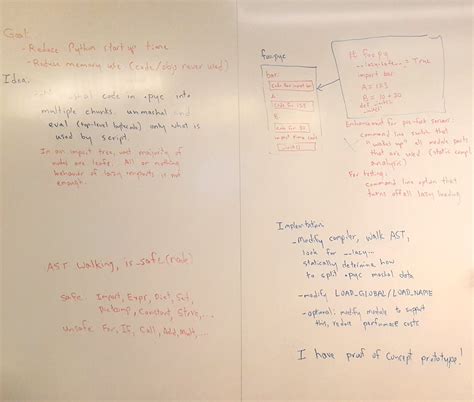 Goal:
- Reduce Python startup time
- Reduce memory use (code/objs never used)
Idea:
code in .pyc into
multiple chunks, unmarshal and
eval (top-level bytecode) only what is
used by script.
In an import tree, vast majority of
nodes are leafs. All or nothing
behavior of lazy imports is not
enough.
AST Walking, is_safe(node)
safe Import, Expr, Dict, Set,
DictComp, Constant, Store, ...
unsafe For, If, Call, Add, Mult, ...
foo.pyc
bar
A
B
# foo.py
= True
import bar
A = 123
B = 10 + 20
def
Enhancement for pre-fork server:
command line switch that
"wakes up" all module parts
that are used (static
analysis)
For testing:
command line option that
turns off all lazy loading
Implementation
- Modify compiler, walk AST,
look for __lazy...
statically determine how
to split .pyc marshal data
- modify LOAD_GLOBAL/LOAD_NAME
- optional: modify module to support
this, reduce performance costs
I have proof of concept prototype!